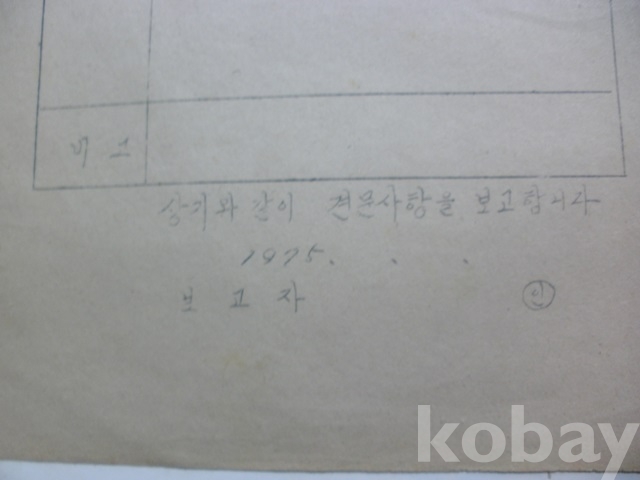 비 고
상기와 같이 견문사항을 보고합니다
1975. . .
보 고 자 인
kobay